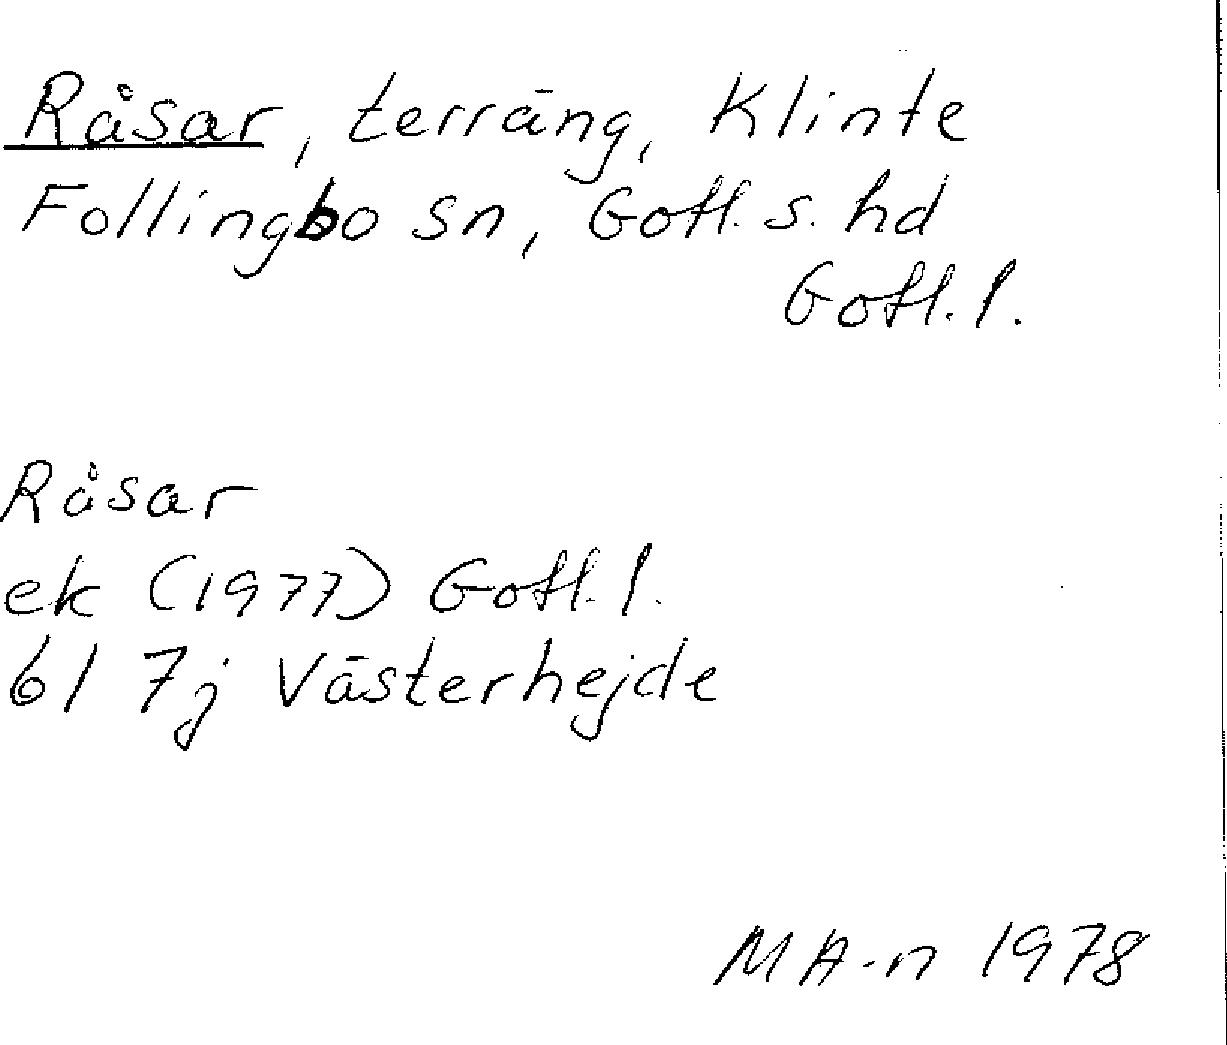 Råsar, terräng, Klinte
Follingbo sn, Gotl. s. hd
Gotl. l.
Råsar
ek (1977) Gotl. l.
61 7j Västerhejde
MA-n 1978